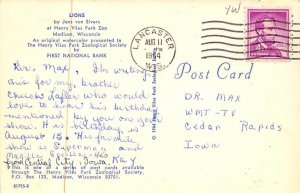 LIONS
by Jens von Sivers
at Henry Vilas Park Zoo
Madison, Wisconsin
An original watercolor presented to
The Henry Vilas Park Zoological Society
by
FIRST NATIONAL BANK
Dr. Max, I'm writing
ask for my brother
Chuck Lafler who would
love to hear his birthday
mentioned by you on your
show. His birthday is
August 15. His favorite
show is Superman and
from Central City, Iowa. Kay
This is one of a series of post cards available
through The Henry Vilas Park Zoological Society,
P.O. Box 125, Madison, Wisconsin 53701.
85795-B
© 1964 Henry Vilas Park
YW
LANCASTER
AUG 11
1964
WIS.
Post Card
DR. MAX
WMT-TV
Cedar Rapids
Iowa